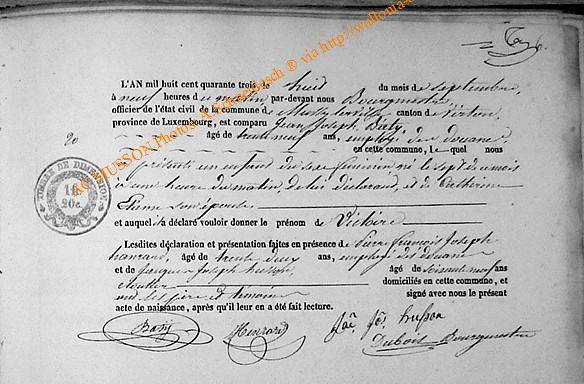 L'AN mil huit cent quarante trois, le huit du mois de Septembre,
à neuf heures du matin par-devant nous Bourgmestre
officier de l'état civil de la commune de Mussy-la-ville canton de Virton,
province de Luxembourg, est comparu Jean Joseph
âgé de trente neuf ans, employé des douanes
en cette commune, le quel nous
20
a présenté un enfant du sexe féminin né le sept du mois
à une heure du matin, de lui déclarant, et de Catherine
son épouse
et auquel il a déclaré vouloir donner le prénom de Victoire
Lesdites déclaration et présentation faites en présence de Pierre François Joseph
âgé de trente deux ans, employé des douanes
et de Jacques Joseph husson, âgé de soixante neuf ans
domiciliés en cette commune, et
ont les père et témoins signé avec nous le présent
acte de naissance, après qu'il leur en a été fait lecture.
TIMBRE DE DIMENSION
20c.
husson
Dubois Bourgmestre